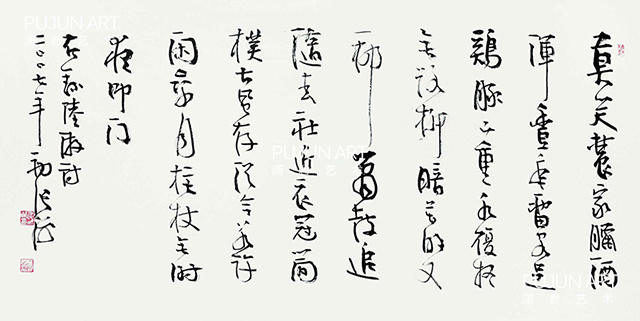 莫笑農家臘酒
渾豐年留客足
鷄豚山重水復疑
無路柳暗花明又
一邨簫鼓追
隨春社近衣冠簡
樸古風存從今若許
閑乘月拄杖無時
夜叩門
右錄陸游詩
二〇〇七年
PUJUN ART
PUJUN ART
PUJUN ART